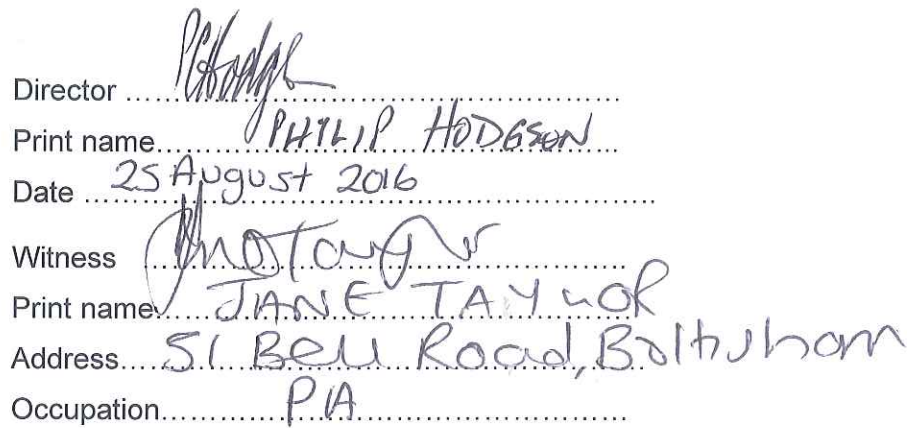 Director
Print name PHILIP HODGSON
Date 25 August 2016
Witness
Print name JANE TAYLOR
Address 51 Bell Road,
Occupation PA